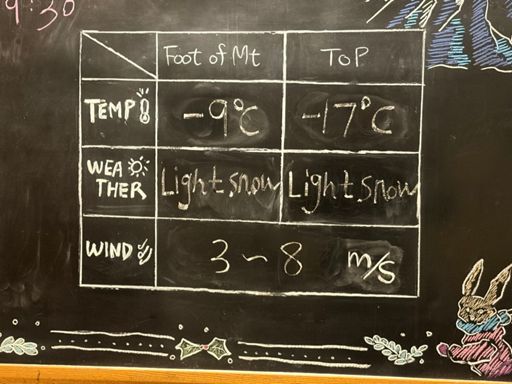 9:30
Foot of Mt TOP
TEMP -9°C -17°C
WEA
THER Light snow Light snow
WIND 3~8 m/s